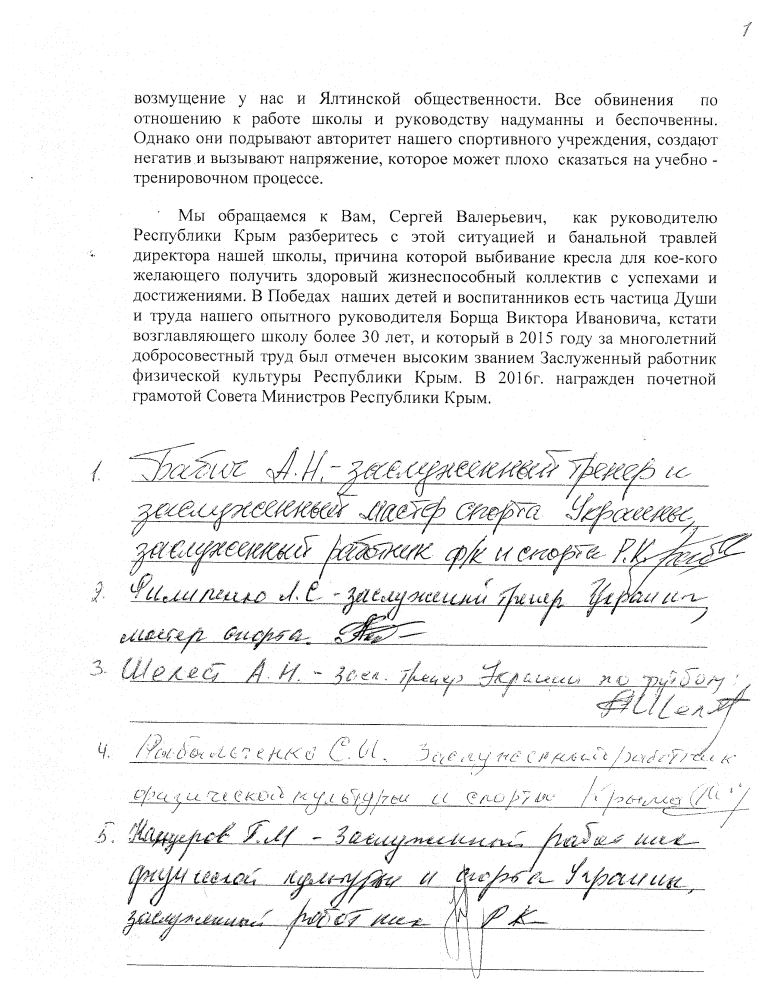 1
возмущение у нас и Ялтинской общественности. Все обвинения по
отношению к работе школы и руководству надуманны и беспочвенны.
Однако они подрывают авторитет нашего спортивного учреждения, создают
негатив и вызывают напряжение, которое может плохо сказаться на учебно -
тренировочном процессе.
Мы обращаемся к Вам, Сергей Валерьевич, как руководителю
Республики Крым разберитесь с этой ситуацией и банальной травлей
директора нашей школы, причина которой выбивание кресла для кое-кого
желающего получить здоровый жизнеспособный коллектив с успехами и
достижениями. В Победах наших детей и воспитанников есть частица Души
и труда нашего опытного руководителя Борща Виктора Ивановича, кстати
возглавляющего школу более 30 лет, и который в 2015 году за многолетний
добросовестный труд был отмечен высоким званием Заслуженный работник
физической культуры Республики Крым. В 2016г. награжден почетной
грамотой Совета Министров Республики Крым.
1. Бабич А.Н. - заслуженный тренер и
заслуженный мастер спорта Украины,
заслуженный работник ф/к и спорта Р.К.
2. Филипенко Л.С - заслужений тренер Украины,
мастер спорта.
3. Шелест А.Н. - засл. тренер Украины по футболу
4. С.И. Заслуженный работник
физической культуры и спорта Крыма
5. Г.М - Заслуженный работник
физической культуры и спорта Украины,
заслуженный работник РК